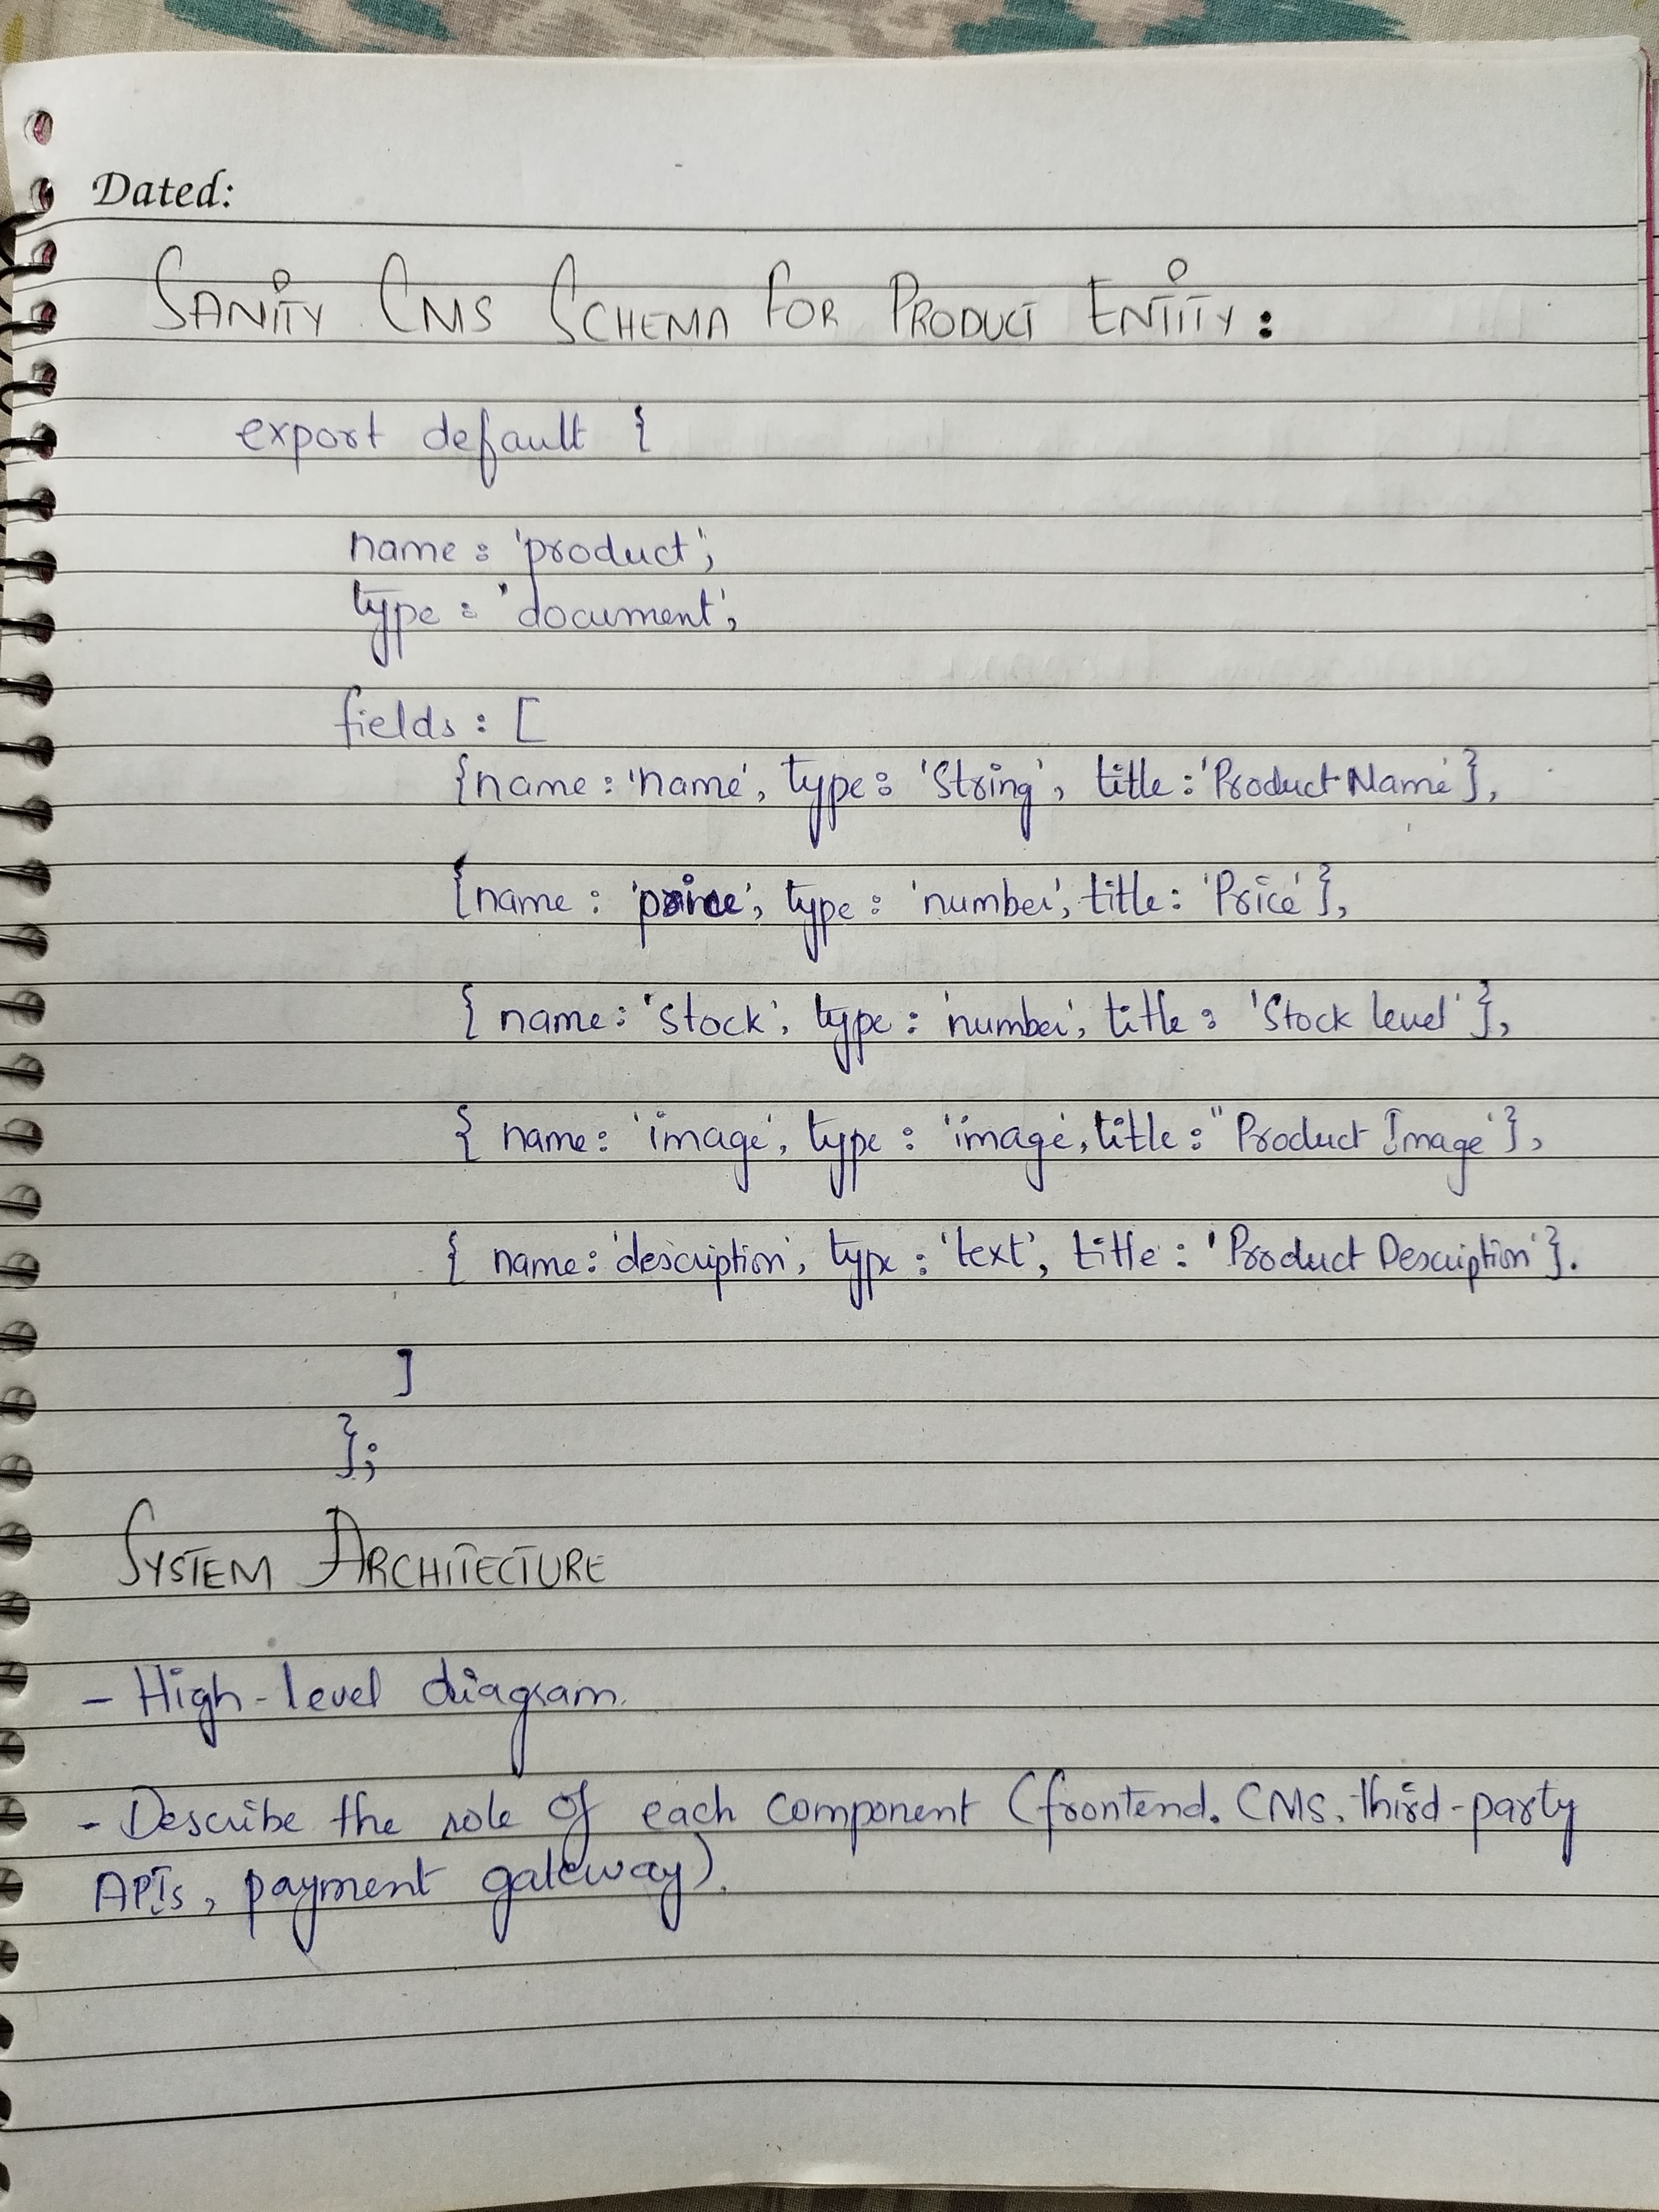 Dated:
SANITY CMS SCHEMA FOR PRODUCT ENTITY:
export default {
name: 'product',
type: 'document',
fields: [
{name: 'name', type: 'String', title: 'Product Name'},
{name: 'price', type: 'number', title: 'Price'},
{ name: 'stock', type: 'number', title: 'Stock level'},
{ name: 'image', type: 'image', title: "Product Image'},
{ name: 'description', type: 'text', title: 'Product Description'}.
]
};
SYSTEM ARCHITECTURE
- High-level diagram.
- Describe the role of each component (frontend. CMS. third-party
APIs, payment gateway).